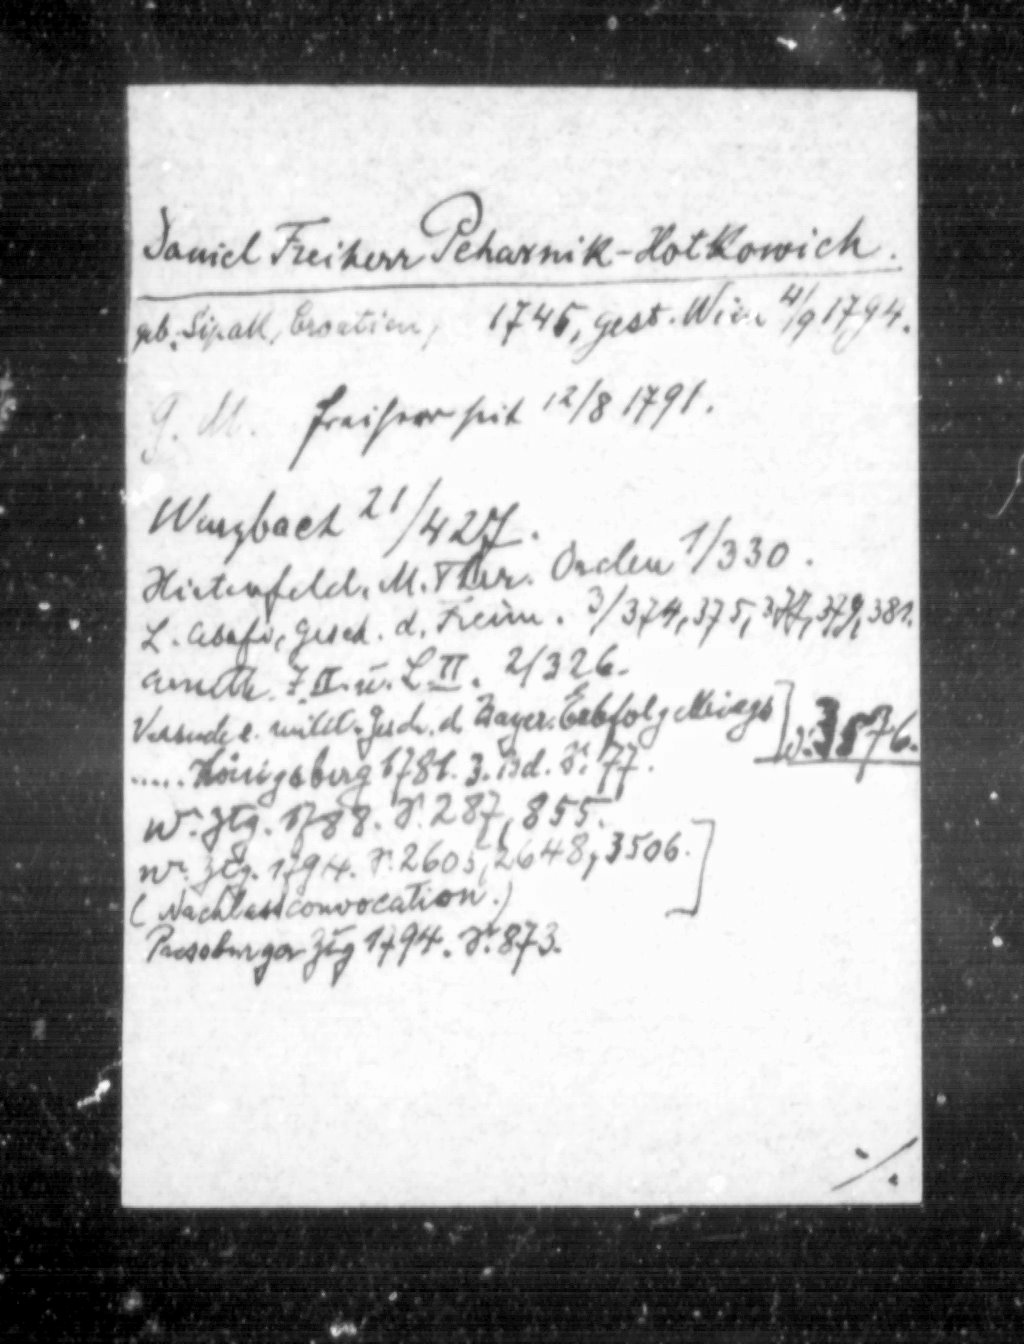 Daniel Freiherr Peharnik-Hotkowich.
geb. Sipak, Croatien, 1745, gest. Wien 4/9 1794.
G. M. Freiherr seit 12/8 1791.
Wurzbach 21/427.
Hirtenfeld. M. Ther. Orden 1/330.
L. Abafi, Gesch. d. Freim. 3/374, 375, 377, 379, 381.
Arneth. J. II. u. L II. 2/326.
Versuch e. milit. Gesch. d. Bayer. Erbfolge Kriegs
..... Königsberg 1781. 3. Bd. S. 77.
] S. 3576.
W. Ztg. 1788. S. 287, 855.
W. Ztg. 1794. S. 2605, 2648, 3506.
(Nachlassconvocation.)
Pressburger Ztg 1794. S. 873.
./.